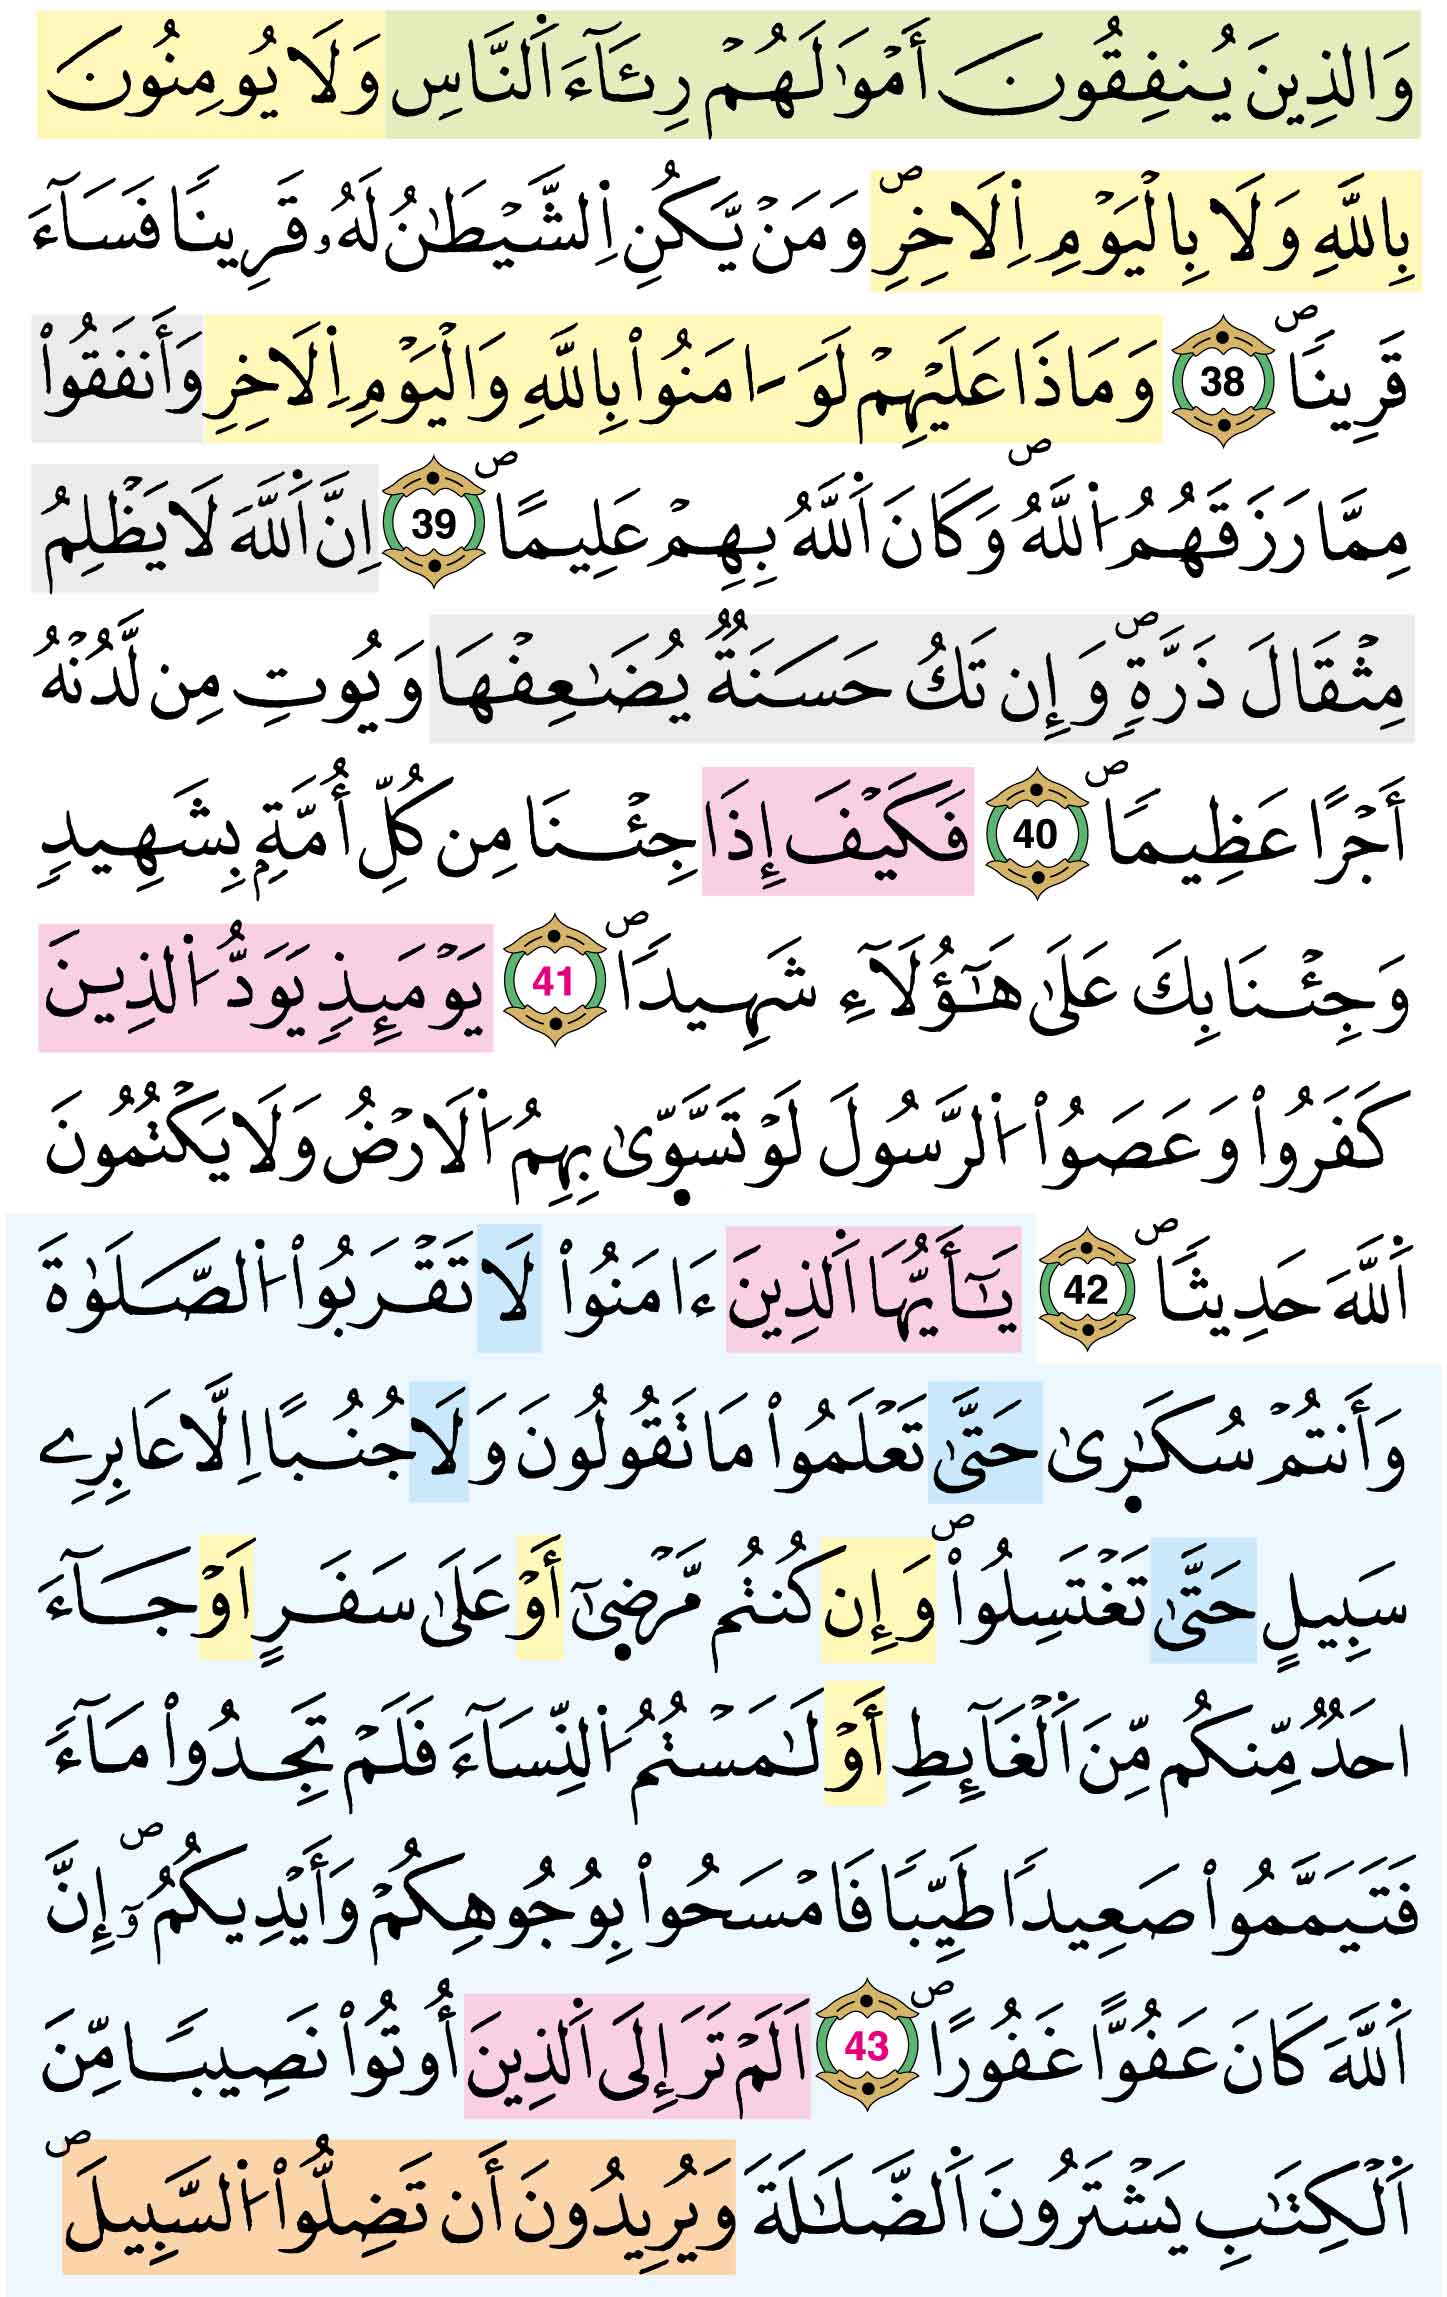 وَالذِينَ يُنفِقُونَ أَمْوَٰلَهُمْ رِئَآءَ اَ۬لنَّاسِ وَلَا يُومِنُونَ
بِاللَّهِ وَلَا بِالْيَوْمِ اِ۬لَاخِرِۖ وَمَنْ يَّكُنِ اِ۬لشَّيْطَٰنُ لَهُۥ قَرِيناٗ فَسَآءَ
قَرِيناٗۖ 38 وَمَاذَا عَلَيْهِمْ لَوَ اٰمَنُواْ بِاللَّهِ وَالْيَوْمِ اِ۬لَاخِرِ وَأَنفَقُواْ
مِمَّا رَزَقَهُمُ اُ۬للَّهُۖ وَكَانَ اَ۬للَّهُ بِهِمْ عَلِيماًۖ 39 اِنَّ اَ۬للَّهَ لَا يَظْلِمُ
مِثْقَالَ ذَرَّةٖۖ وَإِن تَكُ حَسَنَةٞ يُضَٰعِفْهَا وَيُوتِ مِن لَّدُنْهُ
أَجْراً عَظِيماٗۖ 40 فَكَيْفَ إِذَا جِئْنَا مِن كُلِّ أُمَّةِۢ بِشَهِيدٖ
وَجِئْنَا بِكَ عَلَىٰ هَٰٓؤُلَآءِ شَهِيداٗۖ 41 يَوْمَئِذٖ يَوَدُّ اُ۬لذِينَ
كَفَرُواْ وَعَصَوُاْ اُ۬لرَّسُولَ لَوْ تَسَّوّ۪ىٰ بِهِمُ اُ۬لَارْضُ وَلَا يَكْتُمُونَ
اَ۬للَّهَ حَدِيثاٗۖ 42 يَٰٓأَيُّهَا اَ۬لذِينَ ءَامَنُواْ لَا تَقْرَبُواْ اُ۬لصَّلَوٰةَ
وَأَنتُمْ سُكَٰر۪ىٰ حَتَّىٰ تَعْلَمُواْ مَا تَقُولُونَ وَلَا جُنُباً اِلَّا عَابِرِے
سَبِيلٍ حَتَّىٰ تَغْتَسِلُواْۖ وَإِن كُنتُم مَّرْض۪ىٰٓ أَوْ عَلَىٰ سَفَرٍ اَوْ جَآءَ
احَدٞ مِّنكُم مِّنَ اَ۬لْغَآئِطِ أَوْ لَٰمَسْتُمُ اُ۬لنِّسَآءَ فَلَمْ تَجِدُواْ مَآءٗ
فَتَيَمَّمُواْ صَعِيداٗ طَيِّباٗ فَامْسَحُواْ بِوُجُوهِكُمْ وَأَيْدِيكُمُۥٓۖ إِنَّ
اَ۬للَّهَ كَانَ عَفُوّاً غَفُوراًۖ 43 اَلَمْ تَرَ إِلَى اَ۬لذِينَ أُوتُواْ نَصِيباٗ مِّنَ
اَ۬لْكِتَٰبِ يَشْتَرُونَ اَ۬لضَّلَٰلَةَ وَيُرِيدُونَ أَن تَضِلُّواْ اُ۬لسَّبِيلَۖ